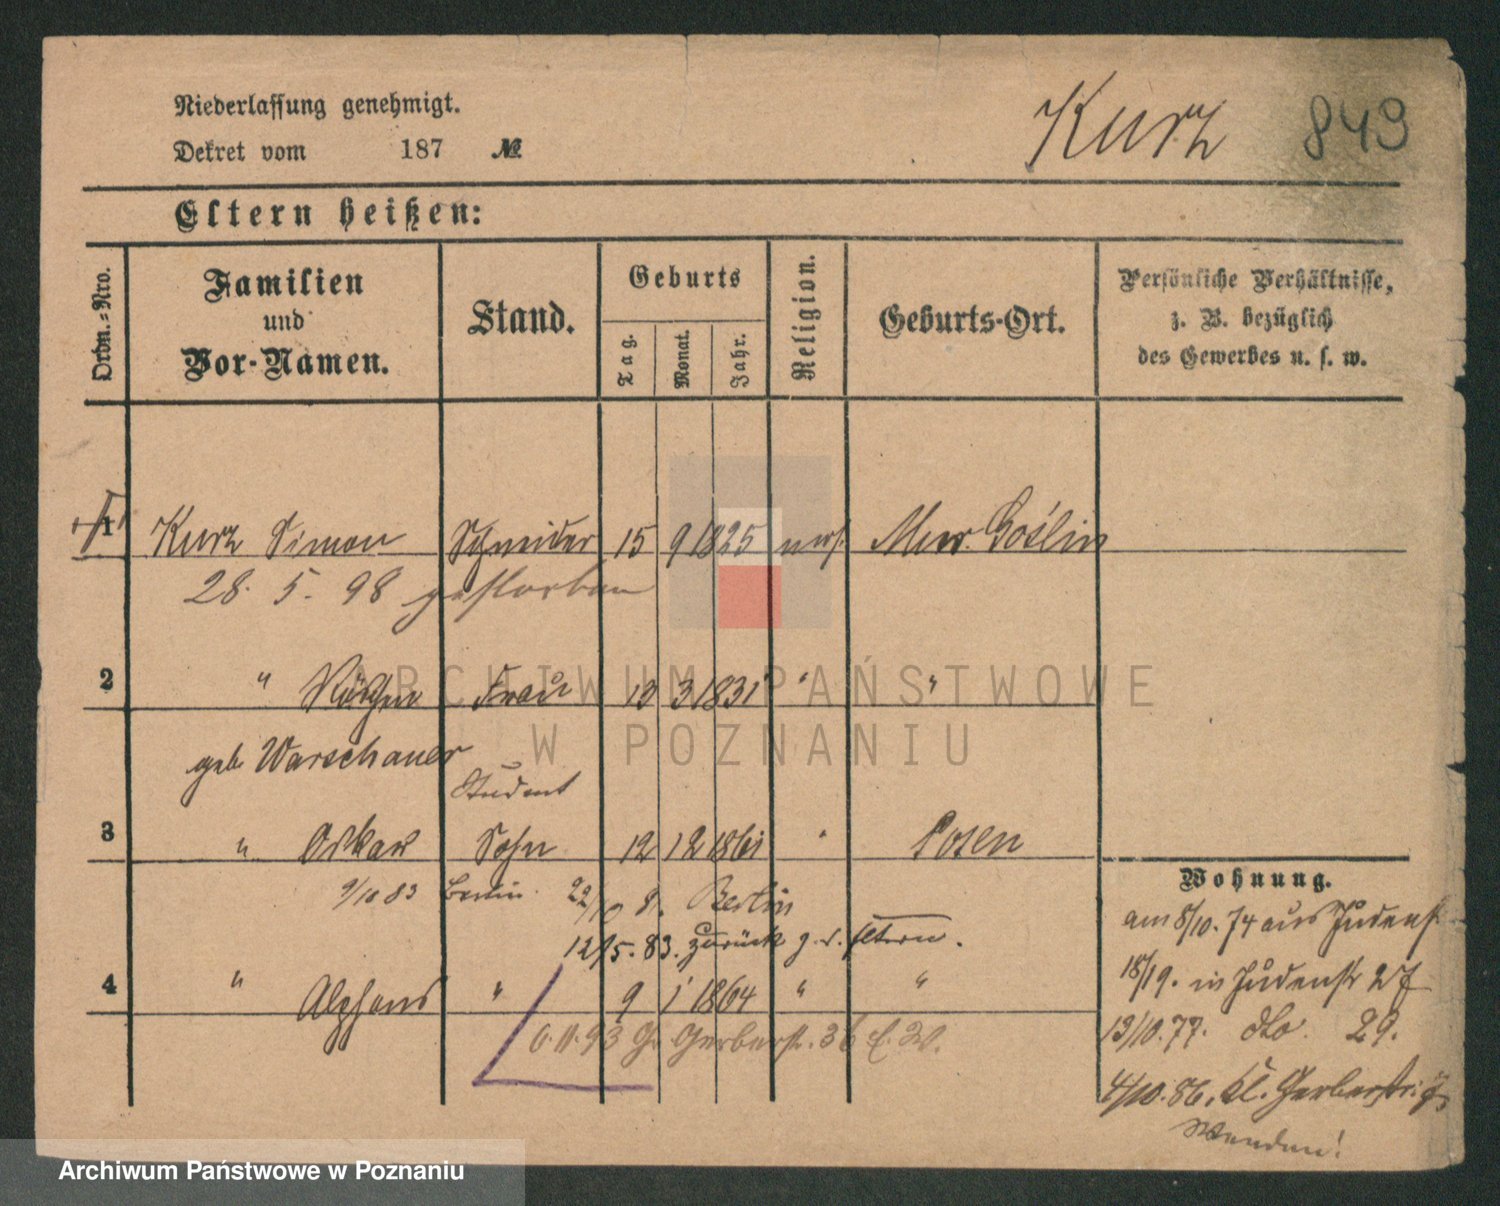 Niederlassung genehmigt.
Dekret vom 187 №
Kurz 849
Eltern heißen:
Ordn.-Nro.
Familien und Vor-Namen.
Stand.
Geburts
Tag.
Monat.
Jahr.
Religion.
Geburts-Ort.
Persönliche Verhältnisse,
z. B. bezüglich
des Gewerbes u. s. w.
1 Kurz Simon Schneider 15 9 1825 Mur. Goślin
28. 5. 98 gestorben
2 " Frau 13 3 1831 " "
geb. Warschauer
Student
3 " Oskar Sohn 12 12 1861 " Posen
9/10 83 Berlin. 22/10 Berlin
12/5. 83. zurück z. d. Eltern.
4 " Alphons " 9 1 1864 " "
6.11.93 Gr. Gerberstr. 36
Wohnung.
am 8/10. 74 aus Judenstr
18/19. in Judenstr 27
13/10.77. dto. 29.
4/10.86. Kl. Gerberstr.
Wenden!
ARCHIWUM PAŃSTWOWE
W POZNANIU
Archiwum Państwowe w Poznaniu